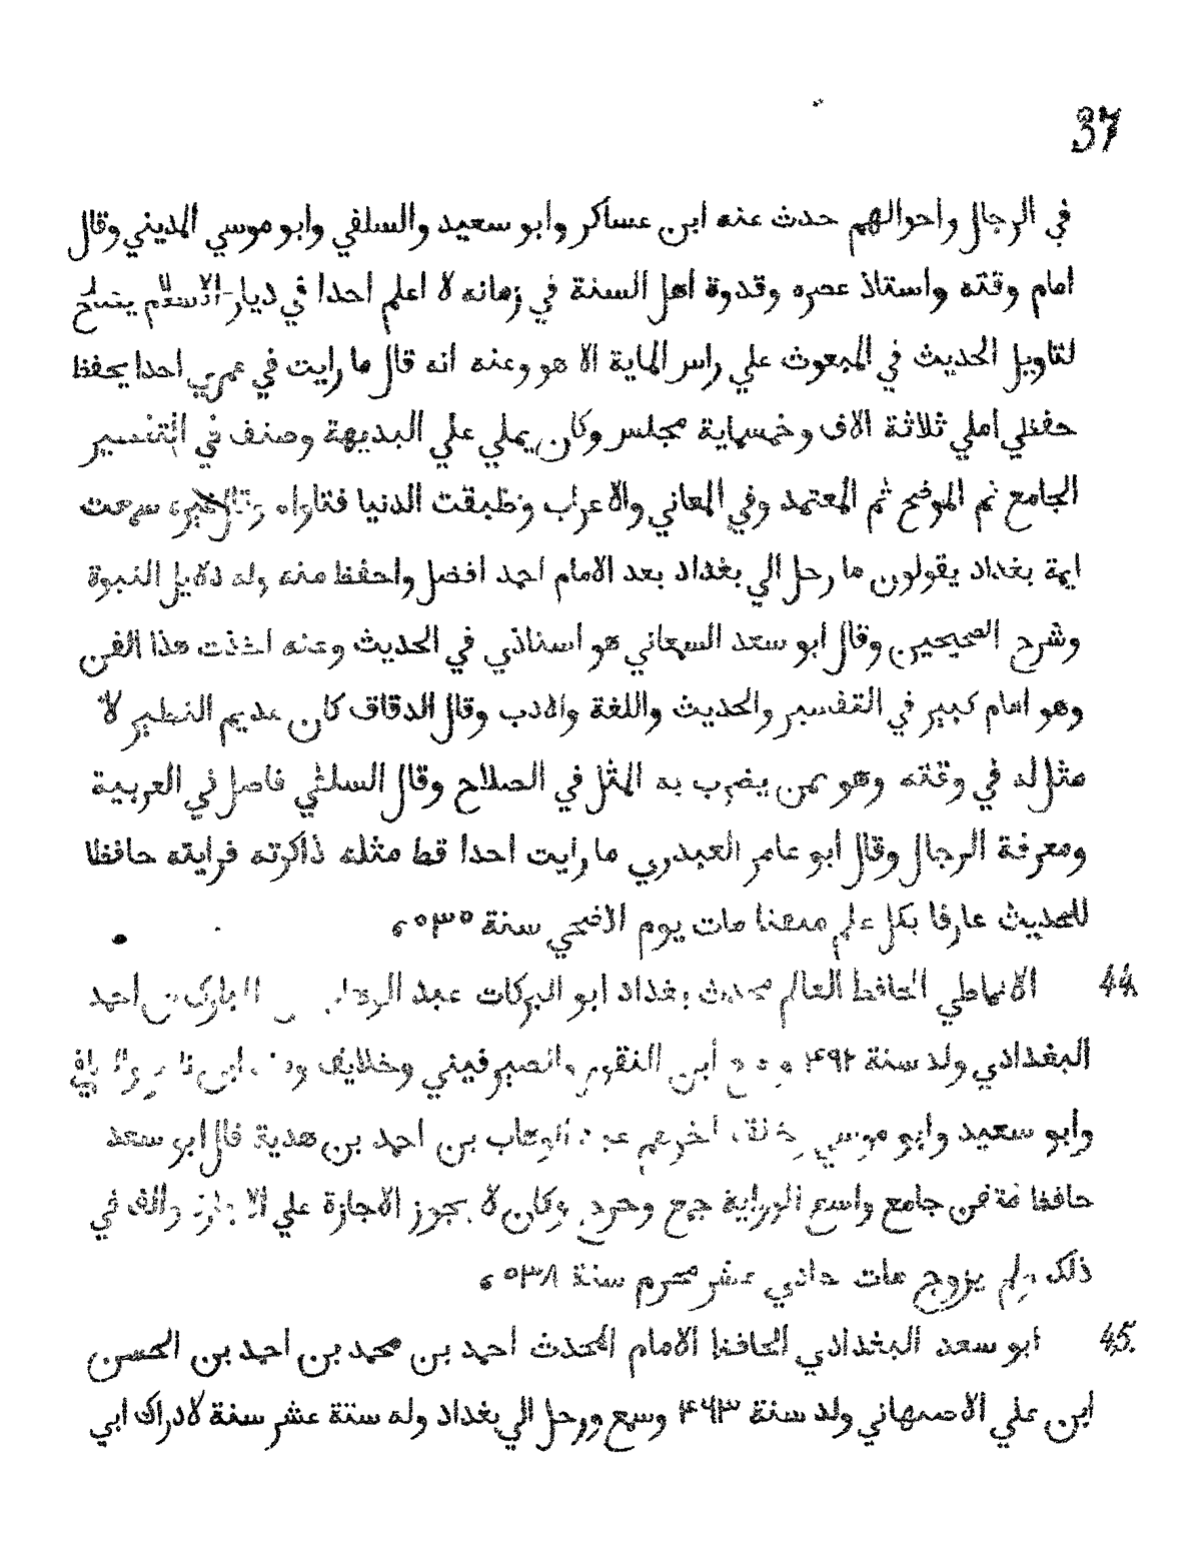 37
في الرجال واحوالهم حدث عنه ابن عساكر وابو سعيد والسلفي وابو موسي المديني وقال
امام وقته واستاذ عصره وقدوة اهل السنة في زمانه لا اعلم احدا في ديار الاسلام يصلح
لتاويل الحديث في المبعوث علي راس الماية الا هو وعنه انه قال ما رايت في عمري احدا يحفظ
حفظي املي ثلاثة الاف وخمسماية مجلس وكان يملي علي البديهة وصنف في التفسير
الجامع ثم الموضح ثم المعتمد وفي المعاني والاعراب وطبقت الدنيا فتاواه سمعت
ايمة بغداد يقولون ما رحل الي بغداد بعد الامام احمد افضل واحفظ منه وله دلايل النبوة
وشرح الصحيحين وقال ابو سعد السمعاني هو استاذي في الحديث وعنه اخذت هذا الفن
وهو امام كبير في التفسير والحديث واللغة والادب وقال الدقاق كان عديم النظير لا
مثل له في وقته وهو ممن يضرب به المثل في الصلاح وقال السلفي فاضل في العربية
ومعرفة الرجال وقال ابو عامر العبدري ما رايت احدا قط مثله ذاكرته فرايته حافظا
للحديث عارفا بكل علم متفننا مات يوم الاضحي سنة ٥٣٥
44. الانماطي الحافظ العالم محدث بغداد ابو البركات عبد الوهاب بن المبارك بن احمد
البغدادي ولد سنة ۴۹۲ وسمع ابن النقور والصيرفيني وخلايف ابن ناصر والسلفي
وابو سعيد وابو موسي اخرهم عبد الوهاب بن احمد بن هدية قال ابو سعد
حافظ ثقة متقن جامع واسع الرواية جمع وخرج وكان لا يجوز الاجازة علي الاجازة والف في
ذلك ولم يزوج مات حادي عشر محرم سنة ٥٣٨
45. ابو سعد البغدادي الحافظ الامام المحدث احمد بن محمد بن احمد بن الحسن
ابن علي الاصبهاني ولد سنة ۴۶۳ وسمع ورحل الي بغداد وله ستة عشر سنة لادراك ابي